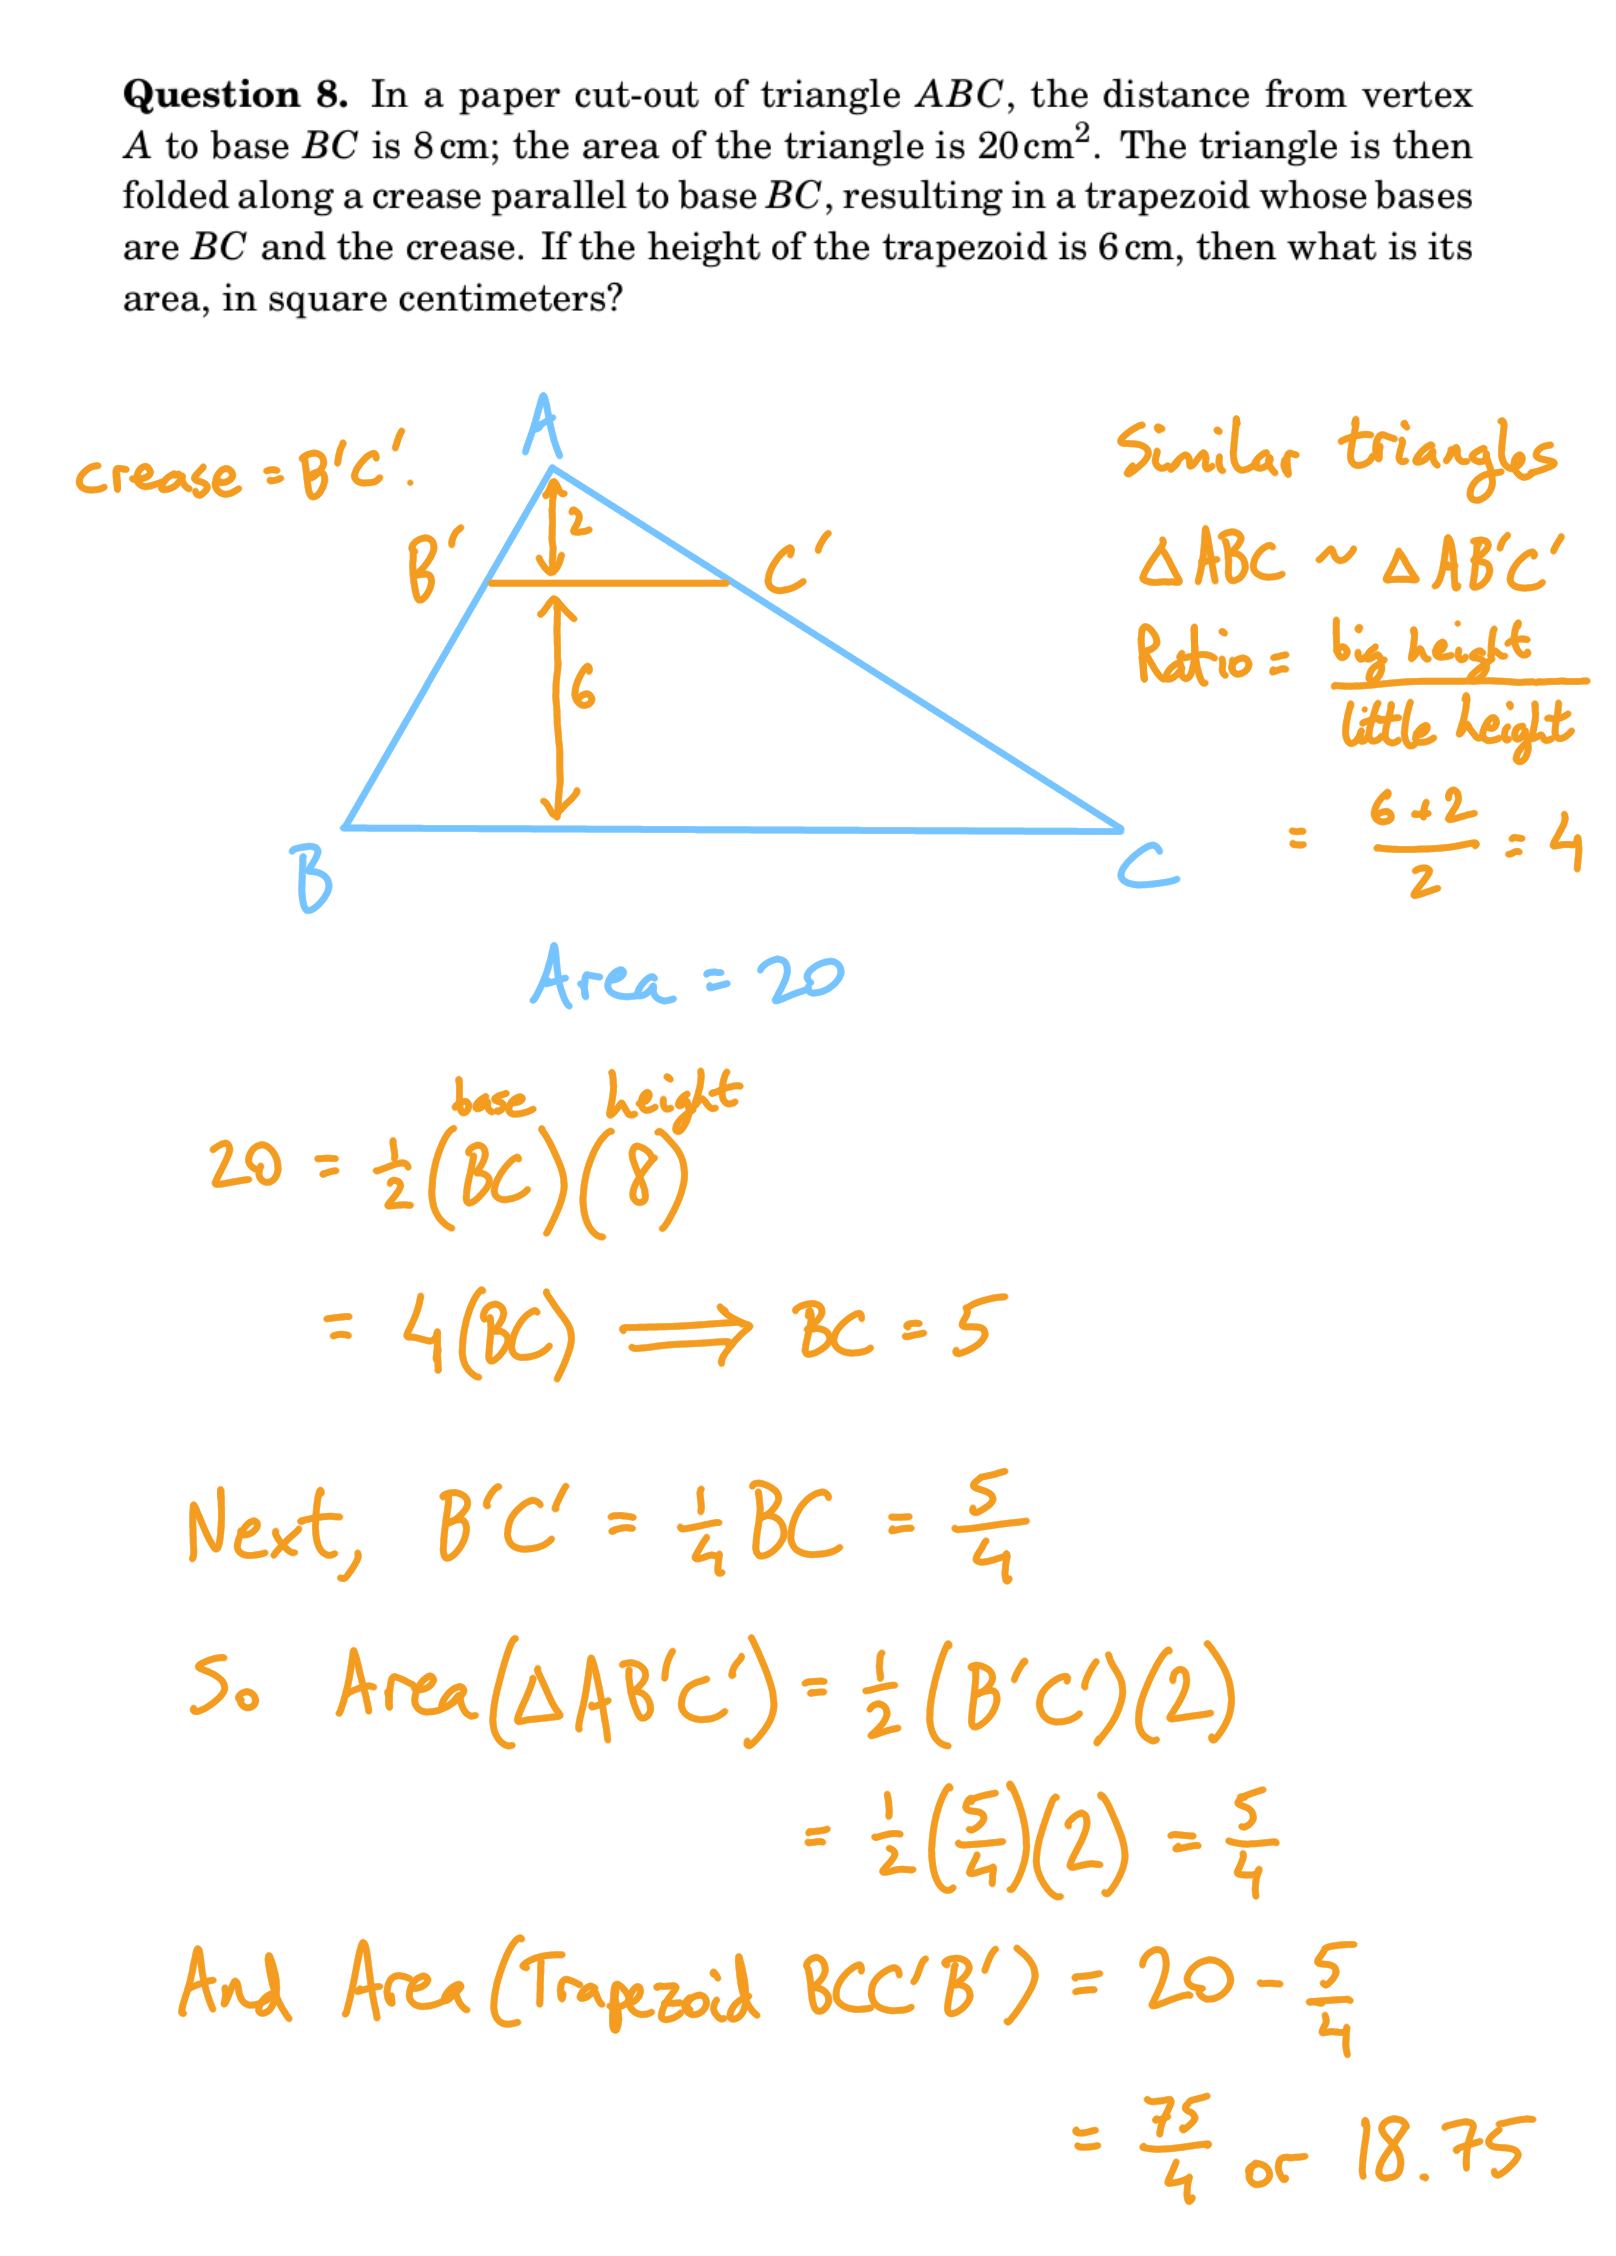 Question 8. In a paper cut-out of triangle ABC, the distance from vertex
A to base BC is 8 cm; the area of the triangle is 20 cm². The triangle is then
folded along a crease parallel to base BC, resulting in a trapezoid whose bases
are BC and the crease. If the height of the trapezoid is 6 cm, then what is its
area, in square centimeters?
crease = B'C'.
A
2
B'
C'
6
B
C
Area = 20
Similar triangles
△ABC ~ △AB'C'
Ratio = big height / little height
= (6+2)/2 = 4
base height
20 = ½(BC)(8)
= 4(BC) ⟹ BC = 5
Next, B'C' = ¼ BC = 5/4
So Area(△AB'C') = ½(B'C')(2)
= ½(5/4)(2) = 5/4
And Area(Trapezoid BCC'B') = 20 - 5/4
= 75/4 or 18.75